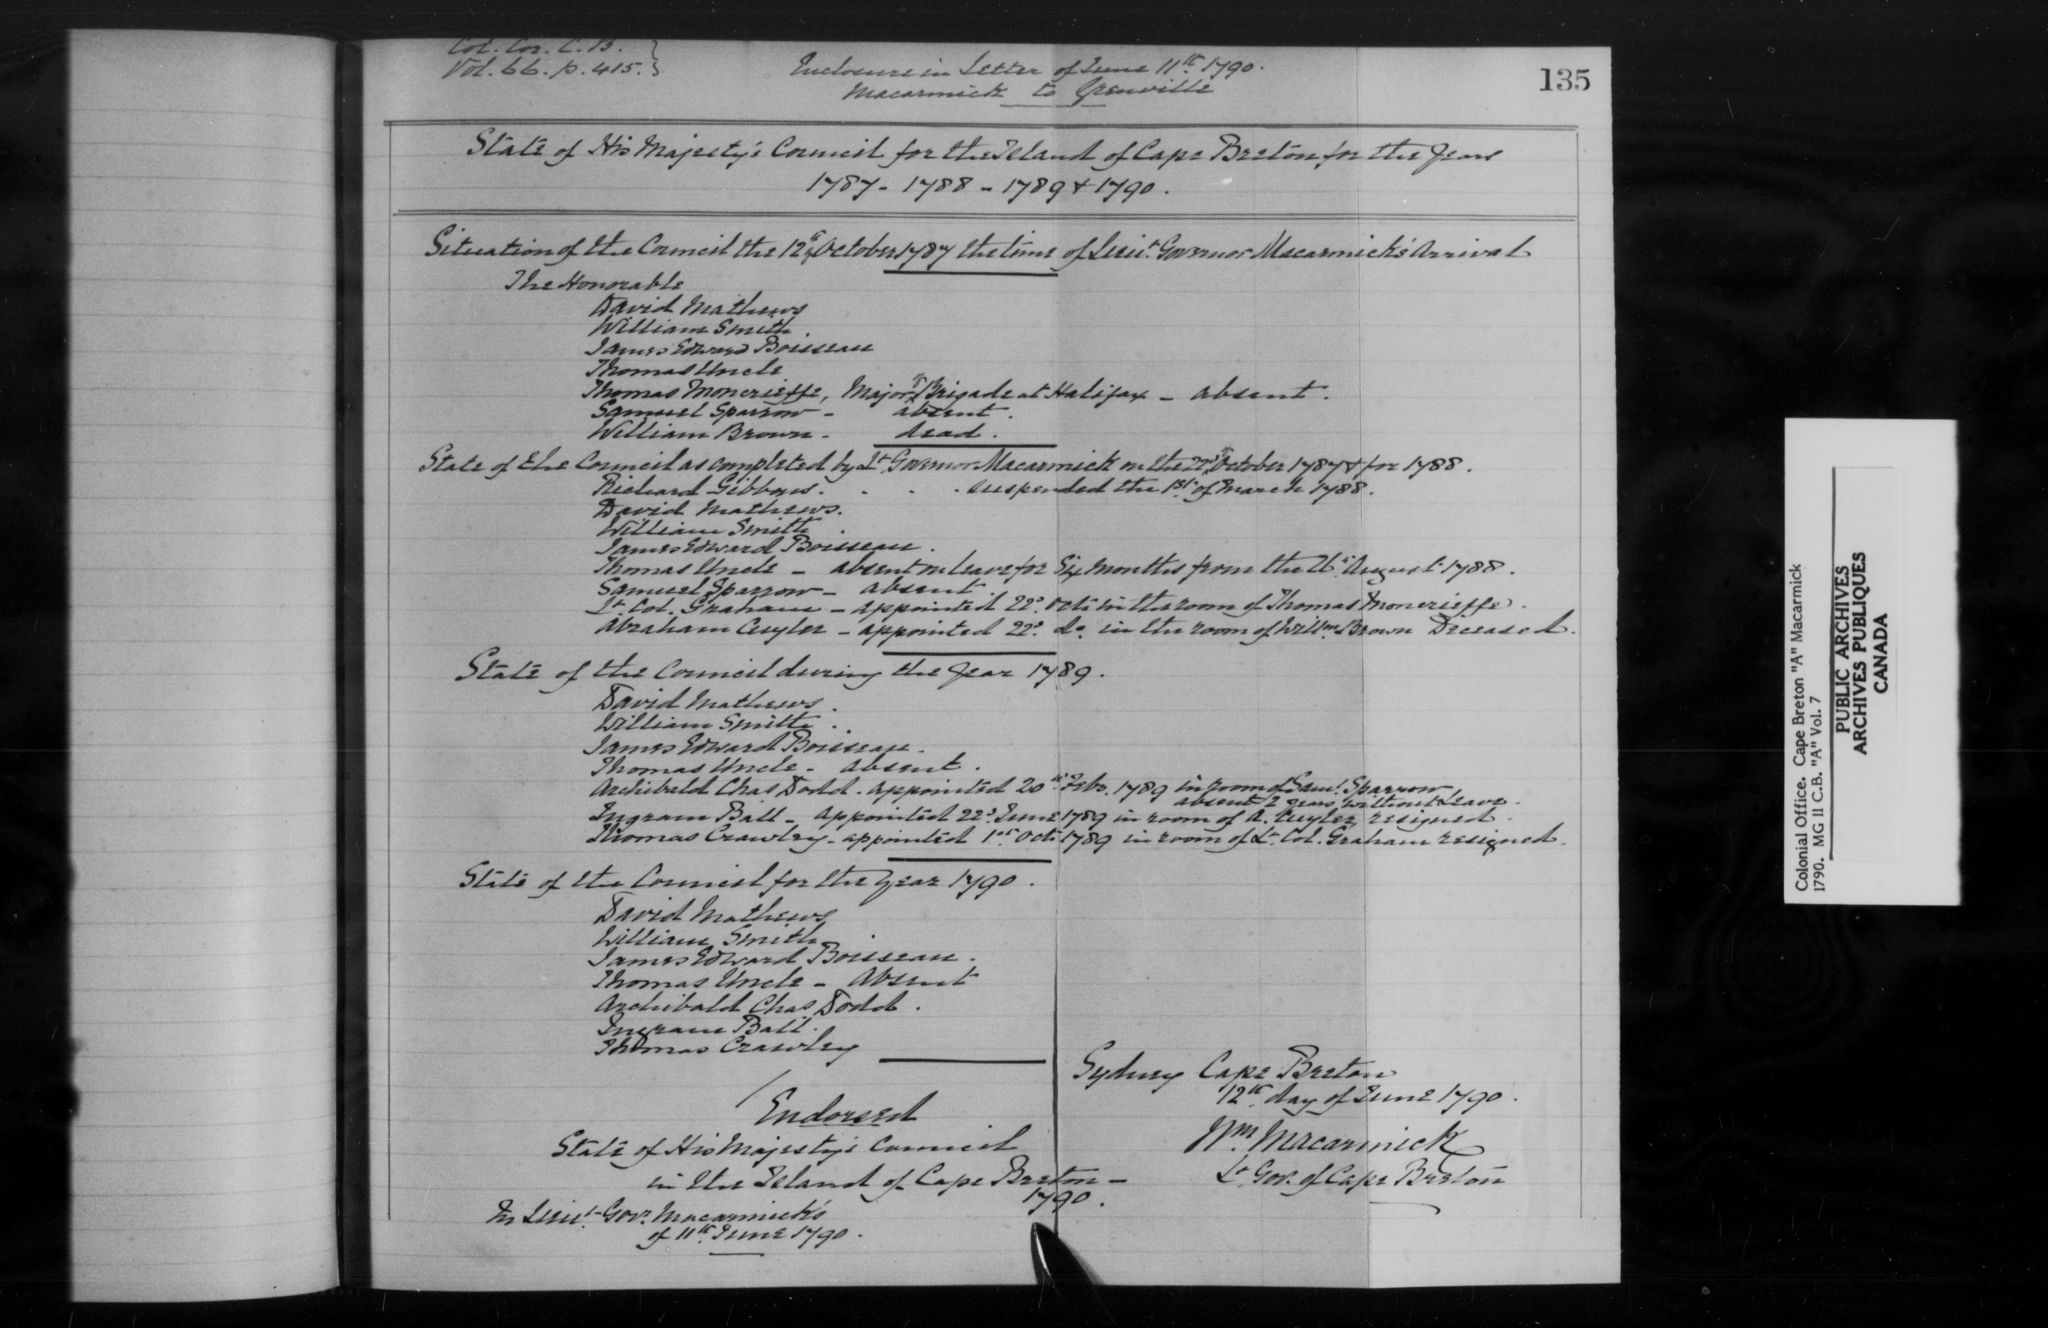 Col. Cor. C. B.
Vol. 66. p. 415.
Enclosure in Letter of June 11th 1790.
Macarmick to Grenville
135
State of His Majesty's Council for the Island of Cape Breton for the Years
1787 - 1788 - 1789 & 1790.
Situation of the Council the 12th of October 1787 the time of Lieut. Governor Macarmick's Arrival
The Honorable
David Mathews
William Smith.
James Edward Boisseau
Thomas Uncle
Thomas Moncrieffe, Major of Brigade at Halifax - absent.
Samuel Sparrow - absent.
William Brown - dead.
State of the Council as completed by Lt. Governor Macarmick on the 22d of October 1787 & for 1788.
Richard Gibbons. . . . suspended the 1st of March 1788.
David Mathews.
William Smith.
James Edward Boisseau.
Thomas Uncle - absent on leave for Six months from the August 1788.
Samuel Sparrow - absent.
Lt. Col. Graham - appointed 22d. Octr in the room of Thomas Moncrieffe.
Abraham Cuyler - appointed 22d. do. in the room of Willm Brown Deceased.
State of the Council during the Year 1789.
David Mathews.
William Smith.
James Edward Boisseau.
Thomas Uncle - absent.
Archibald Chas Dodd - appointed 20th Feby. 1789 in room of Saml. Sparrow
absent 2 years without Leave.
Ingram Ball - appointed 22d June 1789 in room of A. Cuyler resigned.
Thomas Crawley - appointed 1st Octr 1789 in room of Lt. Col. Graham resigned.
State of the Council for the Year 1790.
David Mathews
William Smith.
James Edward Boisseau.
Thomas Uncle - absent
Archibald Chas Dodd.
Ingram Ball.
Thomas Crawley
Sydney Cape Breton
12th day of June 1790.
Wm. Macarmick
Lt. Gov. of Cape Breton
Endorsed
State of His Majesty's Council
in the Island of Cape Breton -
1790.
In Lieut. Govr. Macarmick's
of 11th June 1790.
Colonial Office. Cape Breton "A" Macarmick
1790. MG II C.B. "A" Vol. 7
PUBLIC ARCHIVES
ARCHIVES PUBLIQUES
CANADA